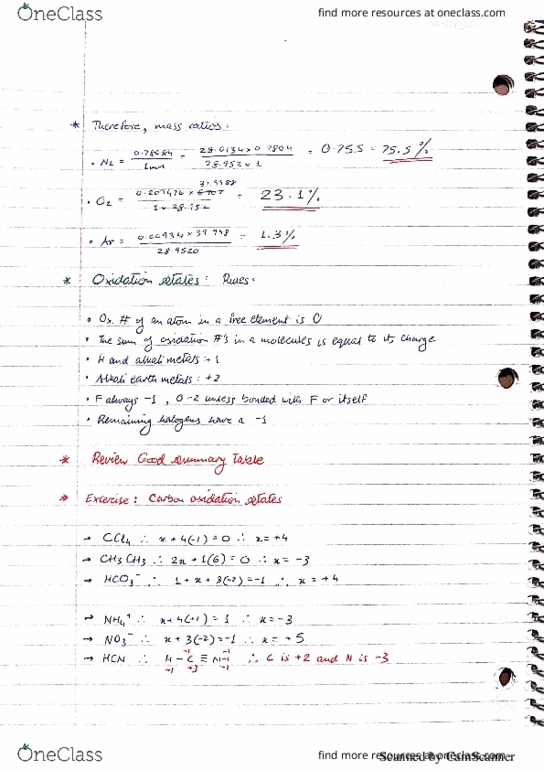 OneClass
find more resources at oneclass.com
* Therefore, mass ratios.
• N2 = = 28.0134 x 0.7804 / 28.952 x 1 = 0.755 = 75.5%
• O2 = = 23.1%
• Ar = = 1.3%
28.9520
* Oxidation states: Rules.
• Ox. # of an atom in a free element is 0
• The sum of oxidation #'s in a molecules is equal to its charge
• H and alkali metals: +1
• Alkali earth metals: +2
• F always -1, O -2 unless bonded with F or itself
• Remaining halogens have a -1
* Review Good summary Table
* Excercise: Carbon oxidation states
→ CCl4 ∴ x + 4(-1) = 0 ∴ x = +4
→ CH3CH3 ∴ 2x + 1(6) = 0 ∴ x = -3
→ HCO3⁻ ∴ 1 + x + 3(-2) = -1 ∴ x = +4
→ NH4⁺ ∴ x + 4(+1) = 1 ∴ x = -3
→ NO3⁻ ∴ x + 3(-2) = -1 ∴ x = +5
→ HCN ∴ H - C ≡ N ∴ C is +2 and N is -3
OneClass
find more resources at oneclass.com
Scanned by CamScanner